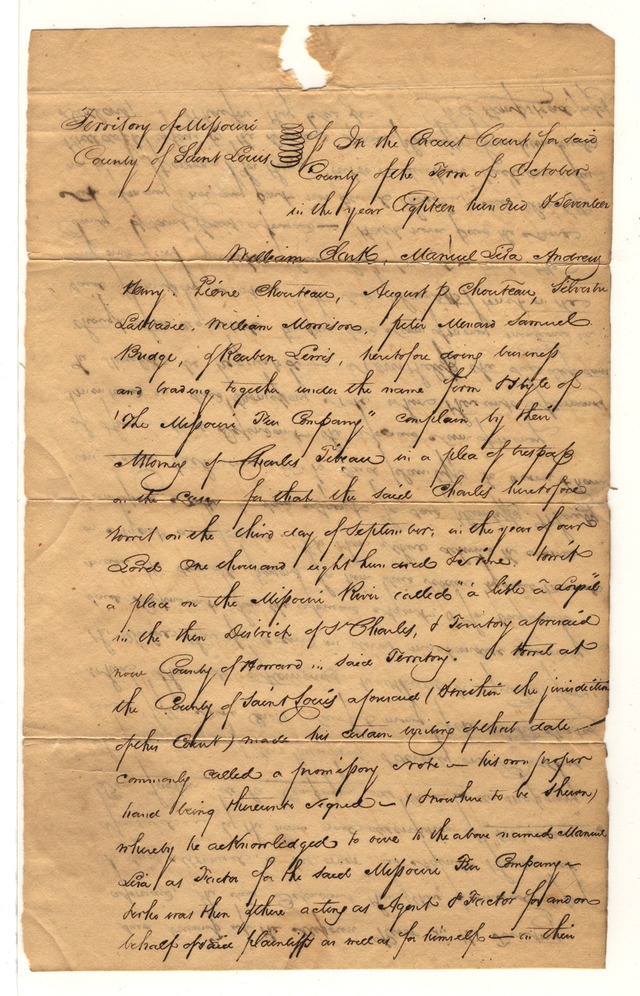 Territory of Missouri
County of Saint Louis
Ss In the Circuit Court for said
County of the Term of October
in the year Eighteen hundred & Seventeen
William Clark, Manuel Lisa Andrew
Henry. Pierre Chouteau, August p Chouteau Silvester
Labbadie, William Morrison, peter Menard Samuel
Bridge, & Reuben Lewis, heretofore doing business
and trading together under the name form & style of
"The Missouri Fur Company" complain by their
Attorney of Charles in a plea of trespass
on the Case, for that the said Charles heretofore
towit on the third day of September, in the year of our
Lord One thousand eight hundred & nine towit
a place on the Missouri River called "
in the then District of St Charles, & Territory aforesaid
now County of Howard in said Territory. towit at
the County of Saint Louis aforesaid (& within the jurisdiction
of this Court) made his certain writing of that date
commonly called a promissory note — his own proper
hand being thereunto signed — (& now here to be shewn)
whereby he acknowledged to owe to the above named Manuel
Lisa as Factor for the said Missouri Fur Company
& who was then & there acting as Agent & Factor for and on
behalf of said plaintiffs as well as for himself — in their